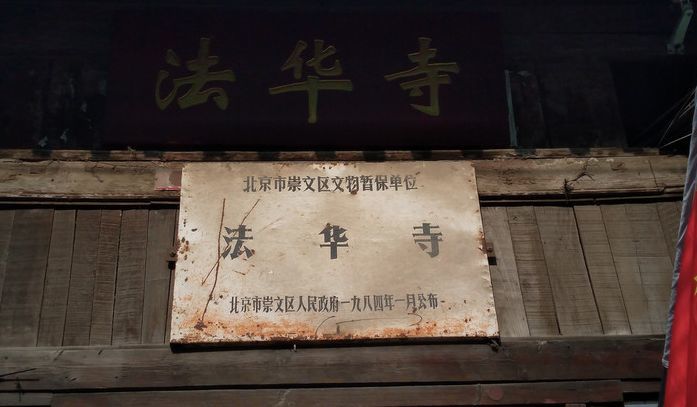 法华寺
北京市崇文区文物暂保单位
法华寺
北京市崇文区人民政府一九八四年一月公布